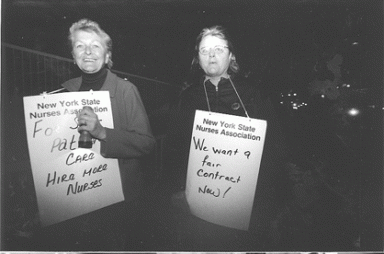 New York State
Nurses Association
For
Patient
CARE
HIRE MORE
NURSES
New York State
Nurses Association
We want a
fair
Contract
Now!